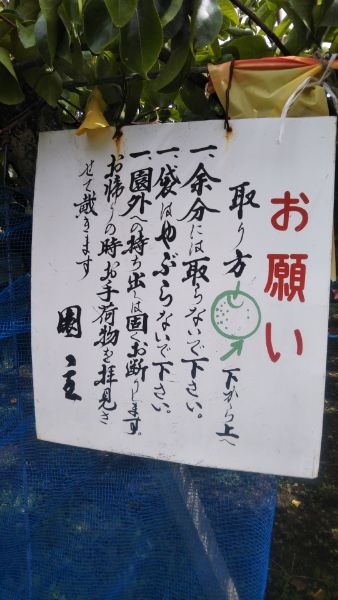 お願い
取り方 下から上へ
一、余分には取らないで下さい。
一、袋はやぶらないで下さい。
一、園外への持ち出しは固くお断りします。
お帰りの時お手荷物を拝見さ
せて戴きます
園主